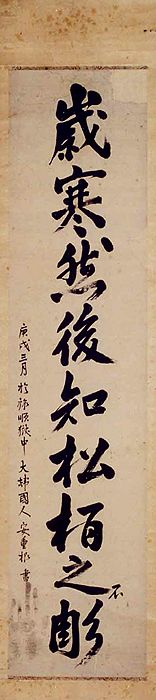 歲寒然後知松栢之不彫
庚戌三月 於旅順獄中 大韓國人 安重根 書